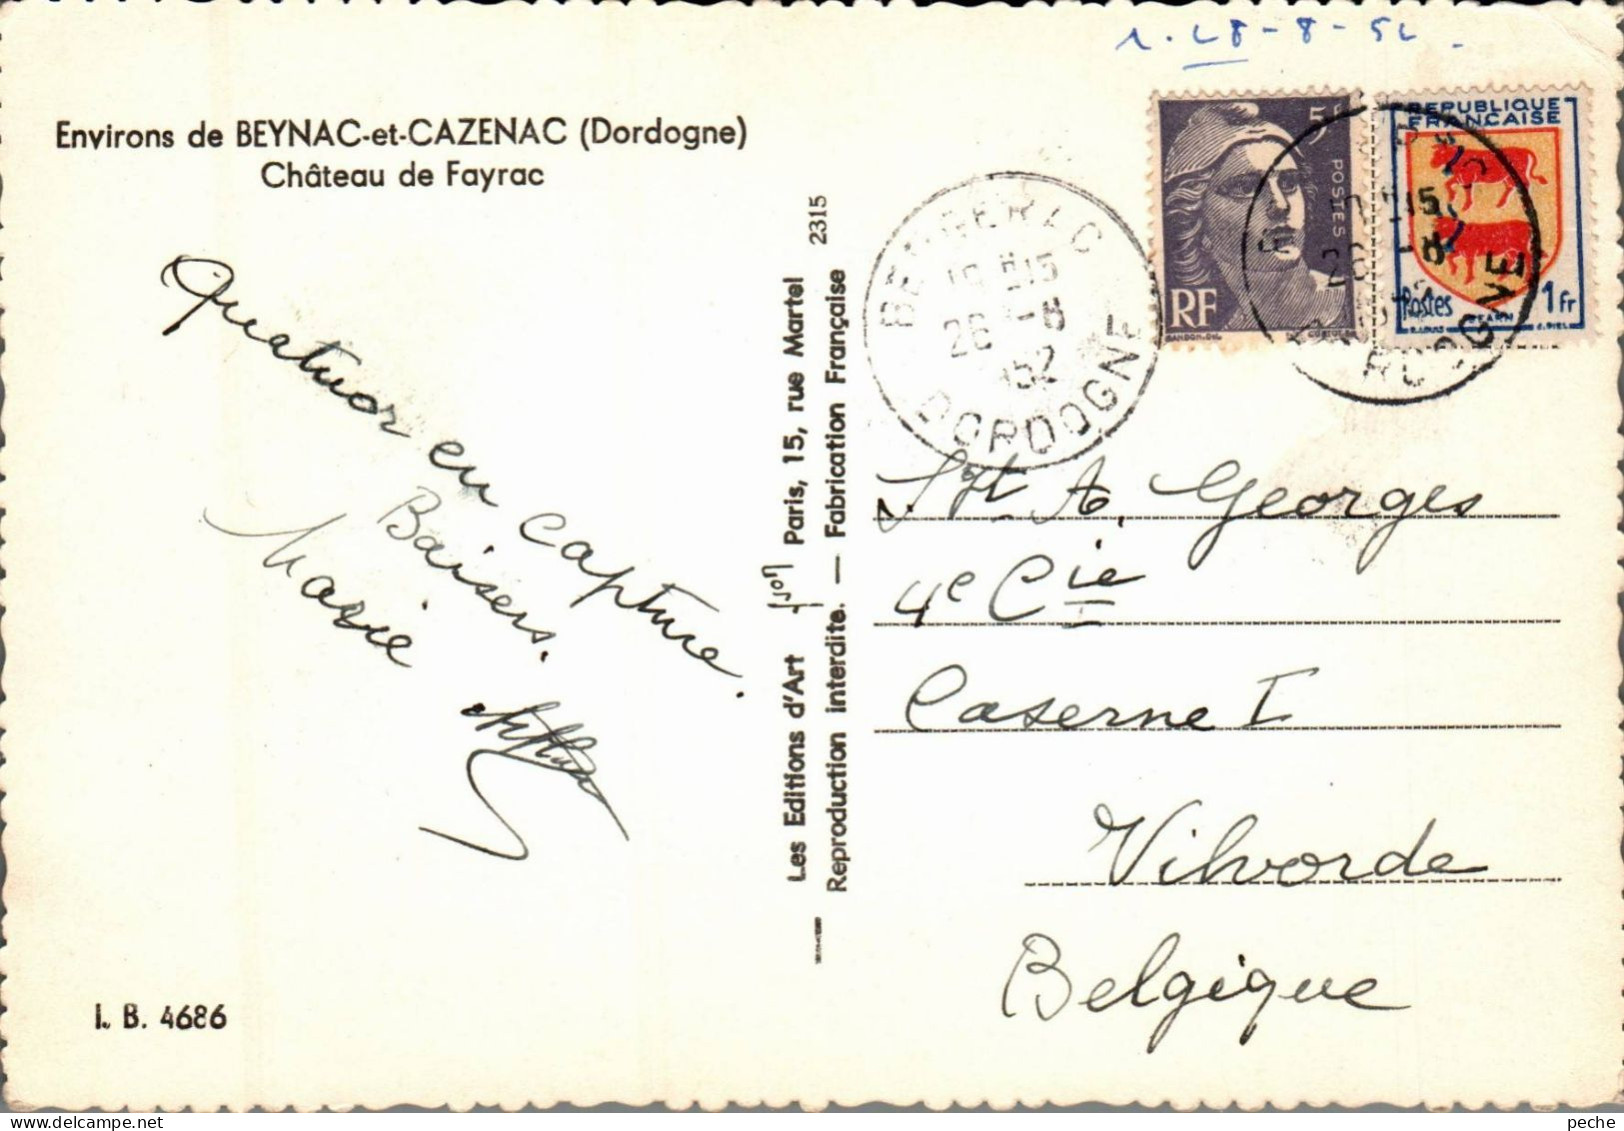 r. 28-8-52.
Environs de BEYNAC-et-CAZENAC (Dordogne)
Château de Fayrac
Quatuor en capture.
Baisers.
Marie
I. B. 4686
Les Editions d'Art "Yvon" Paris, 15, rue Martel
Reproduction interdite. — Fabrication Française
2315
BERGERAC
18H15
26-8
1952
DORDOGNE
5
POSTES
RF
GANDON.DEL
REPUBLIQUE
FRANÇAISE
Postes
1fr
BEARN
18H15
26-8
A. Georges
4e Cie
Caserne I
Vilvorde
Belgique
peche